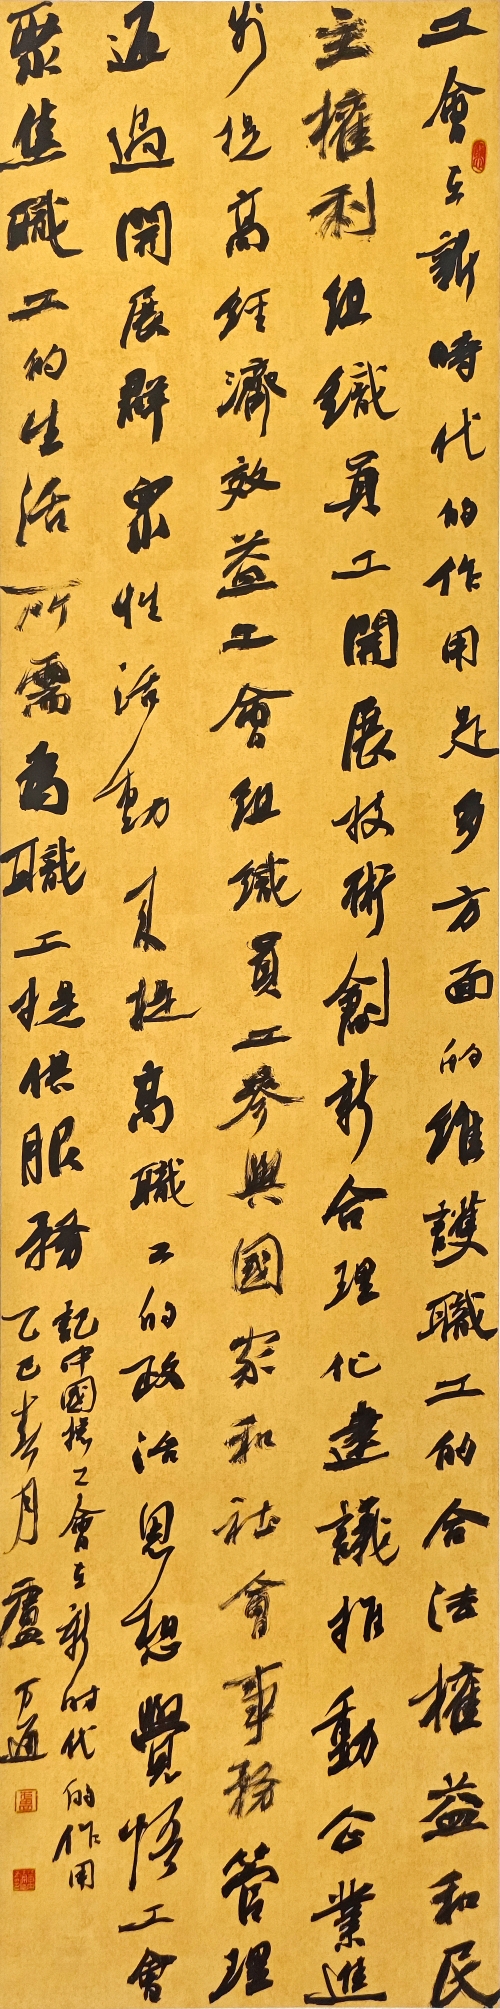 工會在新時代的作用是多方面的維護職工的合法權益和民
主權利組織員工開展技術創新合理化建議推動企業進
步提高經濟效益工會組織員工參與國家和社會事務管理
通過開展群眾性活動來提高職工的政治思想覺悟工會
聚焦職工的生活所需為職工提供服務
記中國總工會在新时代的作用
乙巳春月盧万通